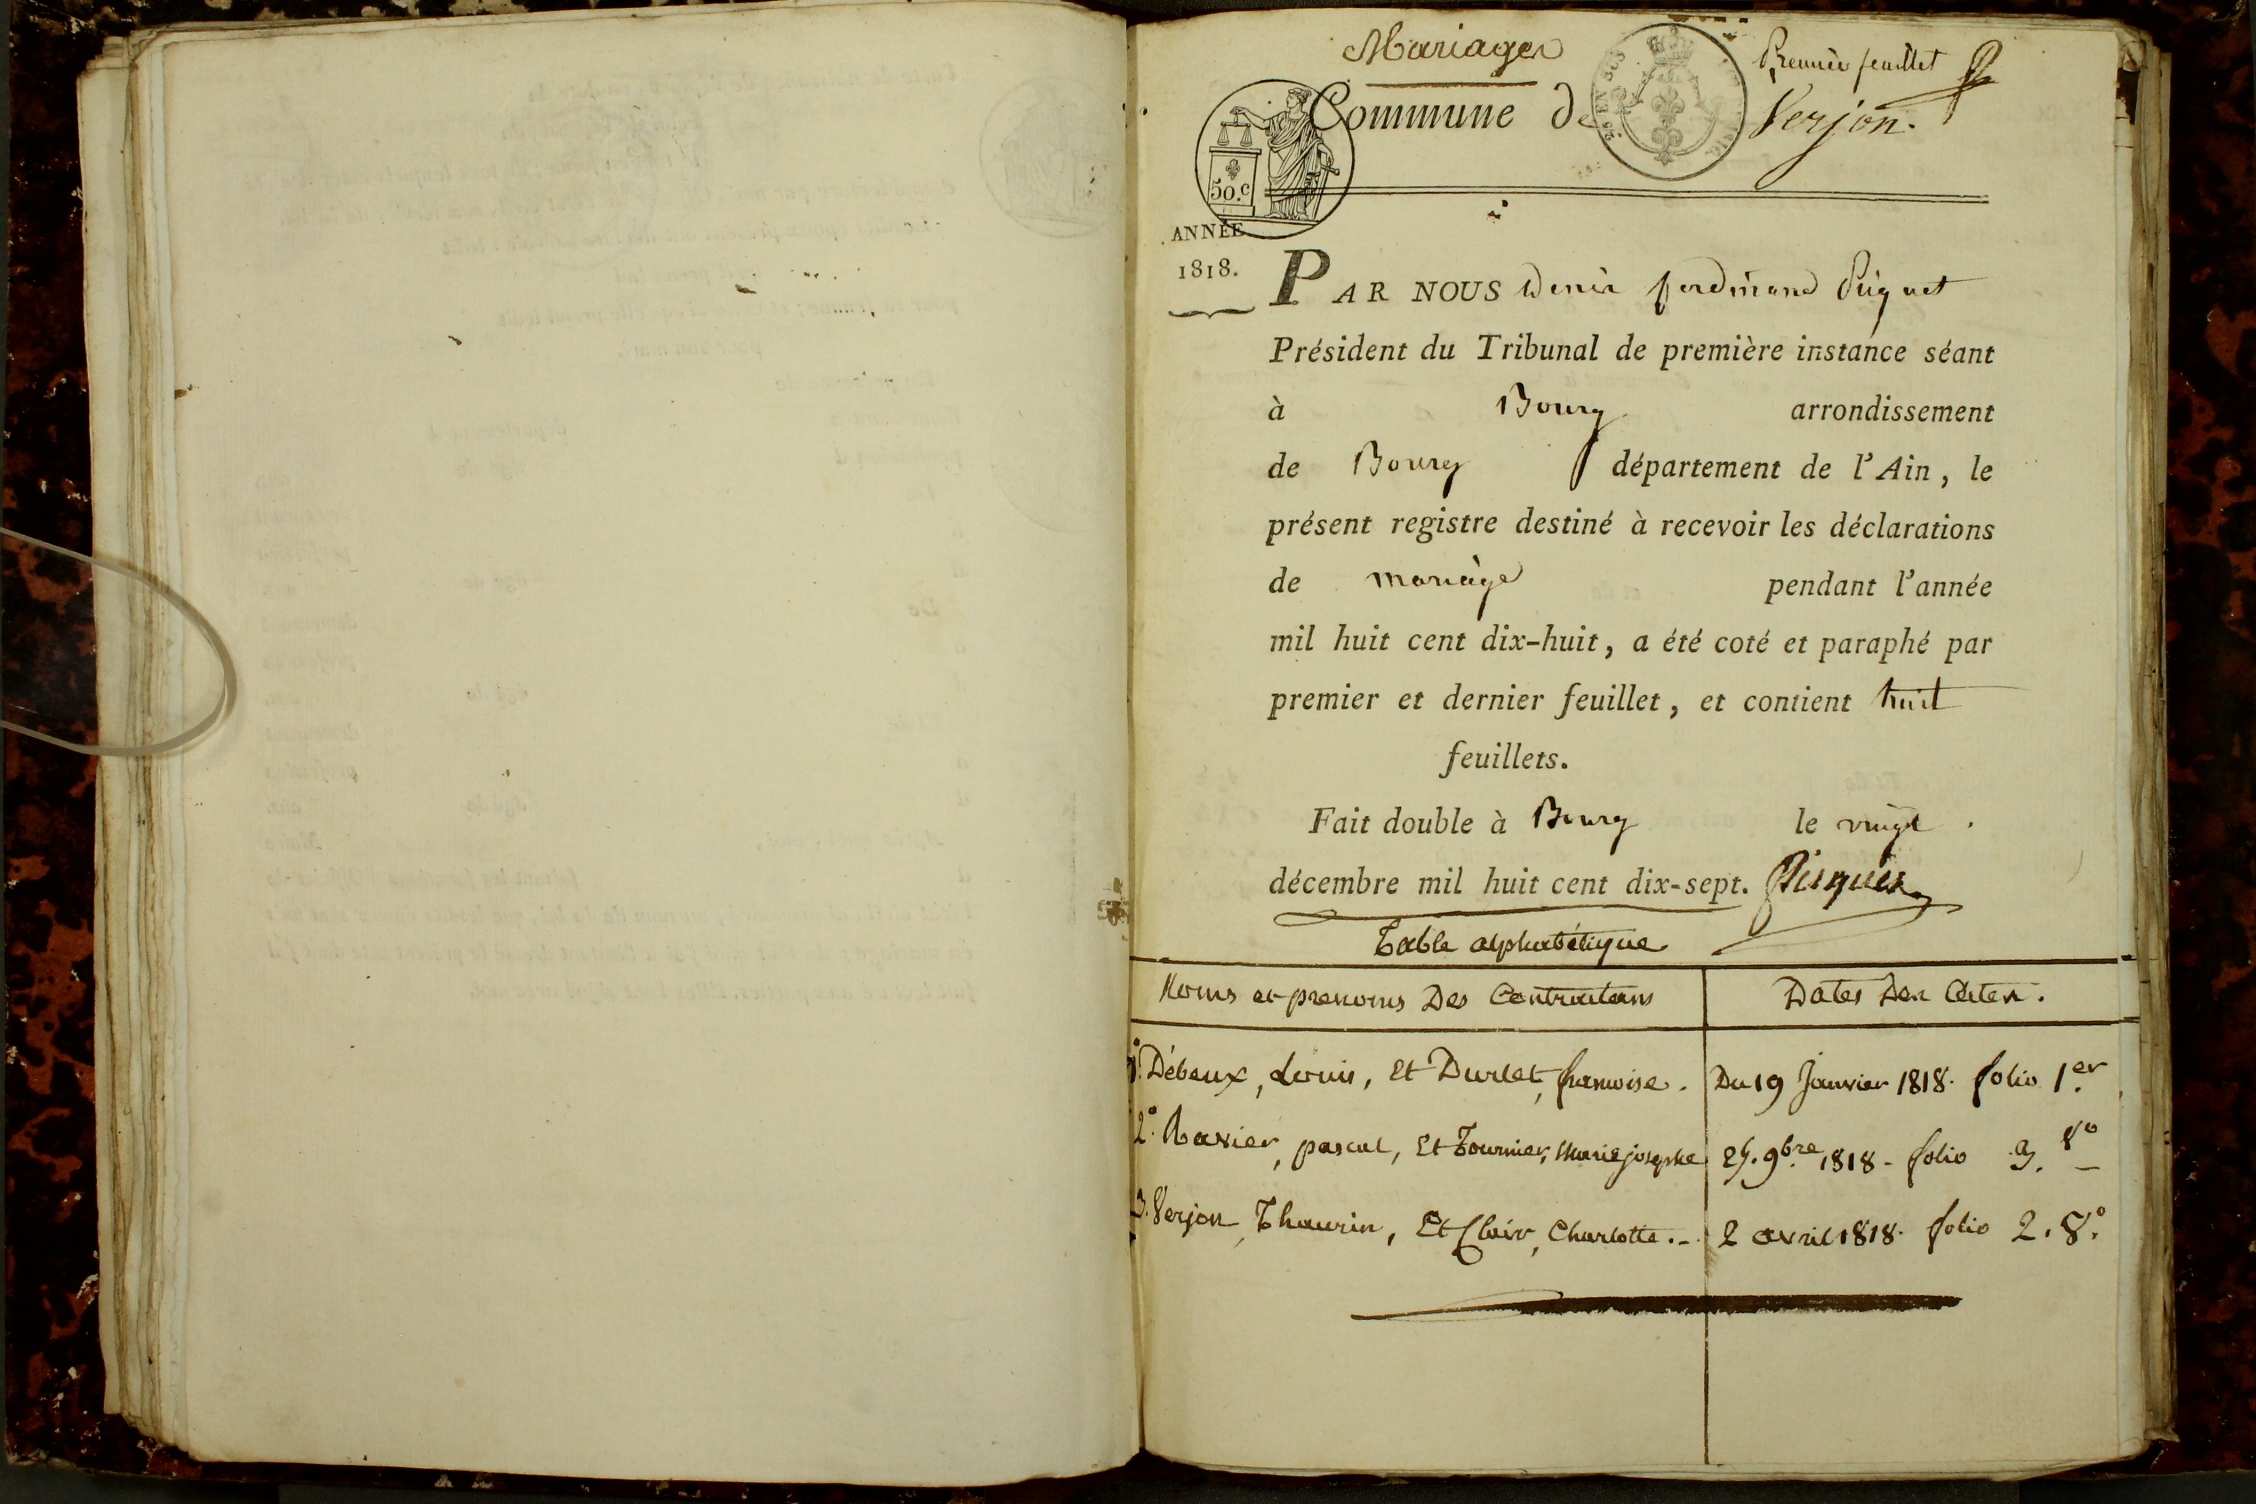 Mariages
Premier feuillet
Commune de Verjon.
50.c
ANNÉE
1818.
PAR NOUS Denis ferdinand Piquet
Président du Tribunal de première instance séant
à Bourg arrondissement
de Bourg département de l'Ain, le
présent registre destiné à recevoir les déclarations
de mariage pendant l'année
mil huit cent dix-huit, a été coté et paraphé par
premier et dernier feuillet, et contient huit
feuillets.
Fait double à Bourg le vingt
décembre mil huit cent dix-sept. Piquet
Table alphabétique
Noms et prenoms Des Contractans Dates Des Actes.
1° Débeux, Louis, Et Durlet, francoise. Du 19 Janvier 1818. folio 1.er
2° Ravier, pascal, Et Tournier, Marie josephe 9bre 1818 - folio 3. v°
3. Verjon, Thaurin, Et Clair, Charlotte. - 2 avril 1818. folio 2. v.°